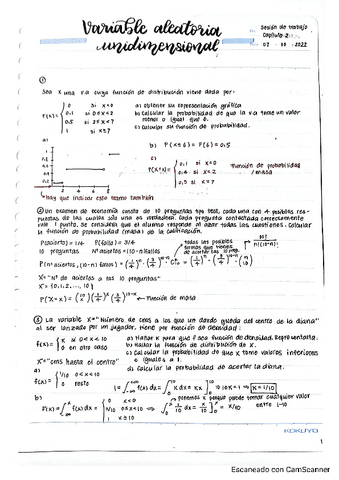 Variable aleatoria
unidimensional
Sesión de trabajo
Capítulo 2
07 - 10 - 2022
①
Sea X una v.a cuya función de distribución viene dada por:
F(x) = { 0 si x<0
0.1 si 0≤x<2
0.5 si 2≤x<7
1 si x≥7
a) obtener su representación gráfica
b) calcular la probabilidad de que la v.a tome un valor
menor o igual que 6.
c) calcular su función de probabilidad.
a)
b) P(X≤6) = F(6) = 0,5
c)
P(X=x) = { 0,1 si x=0
0,4 si x=2
0,5 si x=7
Función de probabilidad
/ masa
hay que indicar este tramo también
② Un examen de economía consta de 10 preguntas tipo test, cada una con 4 posibles res-
puestas de las cuales solo una es verdadera. Cada pregunta contestada correctamente
vale 1 punto. Se considera que el alumno responde al azar todas las cuestiones. Calcular
la función de probabilidad (masa) de la calificación.
P(acierto) = 1/4 P(fallo) = 3/4
10 preguntas nº aciertos =(10-n) fallos
todas las posibles
formas que tienes
de acertar las 10 preg.
X = "Nº de aciertos a las 10 preguntas"
X = {0, 1, 2, ..., 10}
Función de masa
③ La variable X = "Número de cms a los que un dardo queda del centro de la diana"
al ser lanzado por un jugador, tiene por función de densidad:
f(x) = { K si 0<x<10
0 en otro caso
a) Hallar K para que f sea función de densidad. Representarla.
b) Hallar la función de distribución de X.
c) Calcular la probabilidad de que X tome valores inferiores
o iguales a 1.
d) Calcular la probabilidad de acertar la diana.
X = "cms hasta el centro"
a)
f(x) = { 1/10 0<x<10
0 resto
10K = 1 → K = 1/10
b)
ponemos x porque puede tomar cualquier valor
entre 1-10
KOKUYO
1
Escaneado con CamScanner